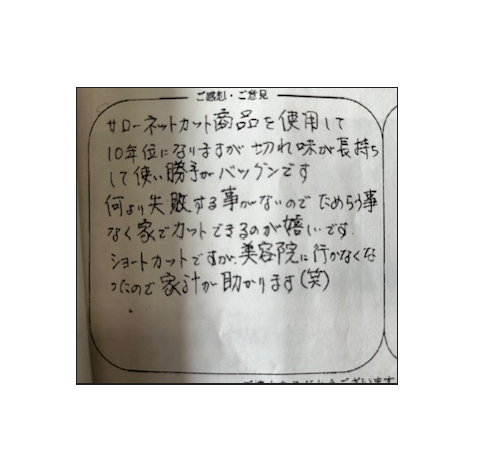 ご感想・ご意見
サローネットカット商品を使用して
10年位になりますが 切れ味が長持ち
して使い勝手がバツグンです
何より失敗する事がないので ためらう事
なく家でカットできるのが嬉しいです.
ショートカットですが、美容院に行かなくな
ったので家計が助かります(笑)